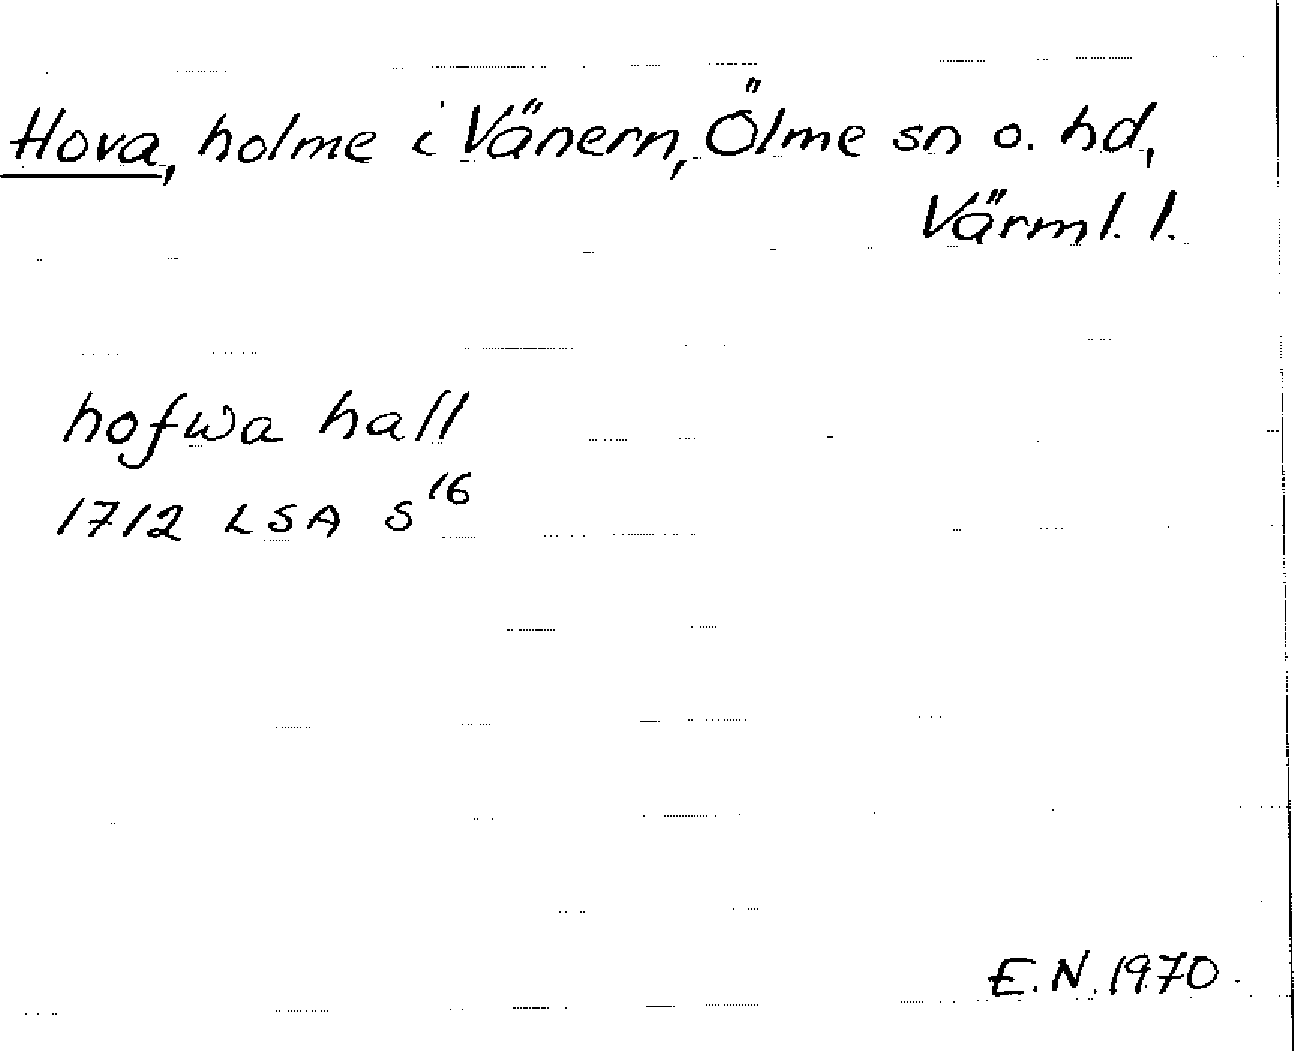 Hova, holme i Vänern, Ölme sn o. hd,
Värml. l.
hofwa hall
1712 LSA S16
E.N. 1970.